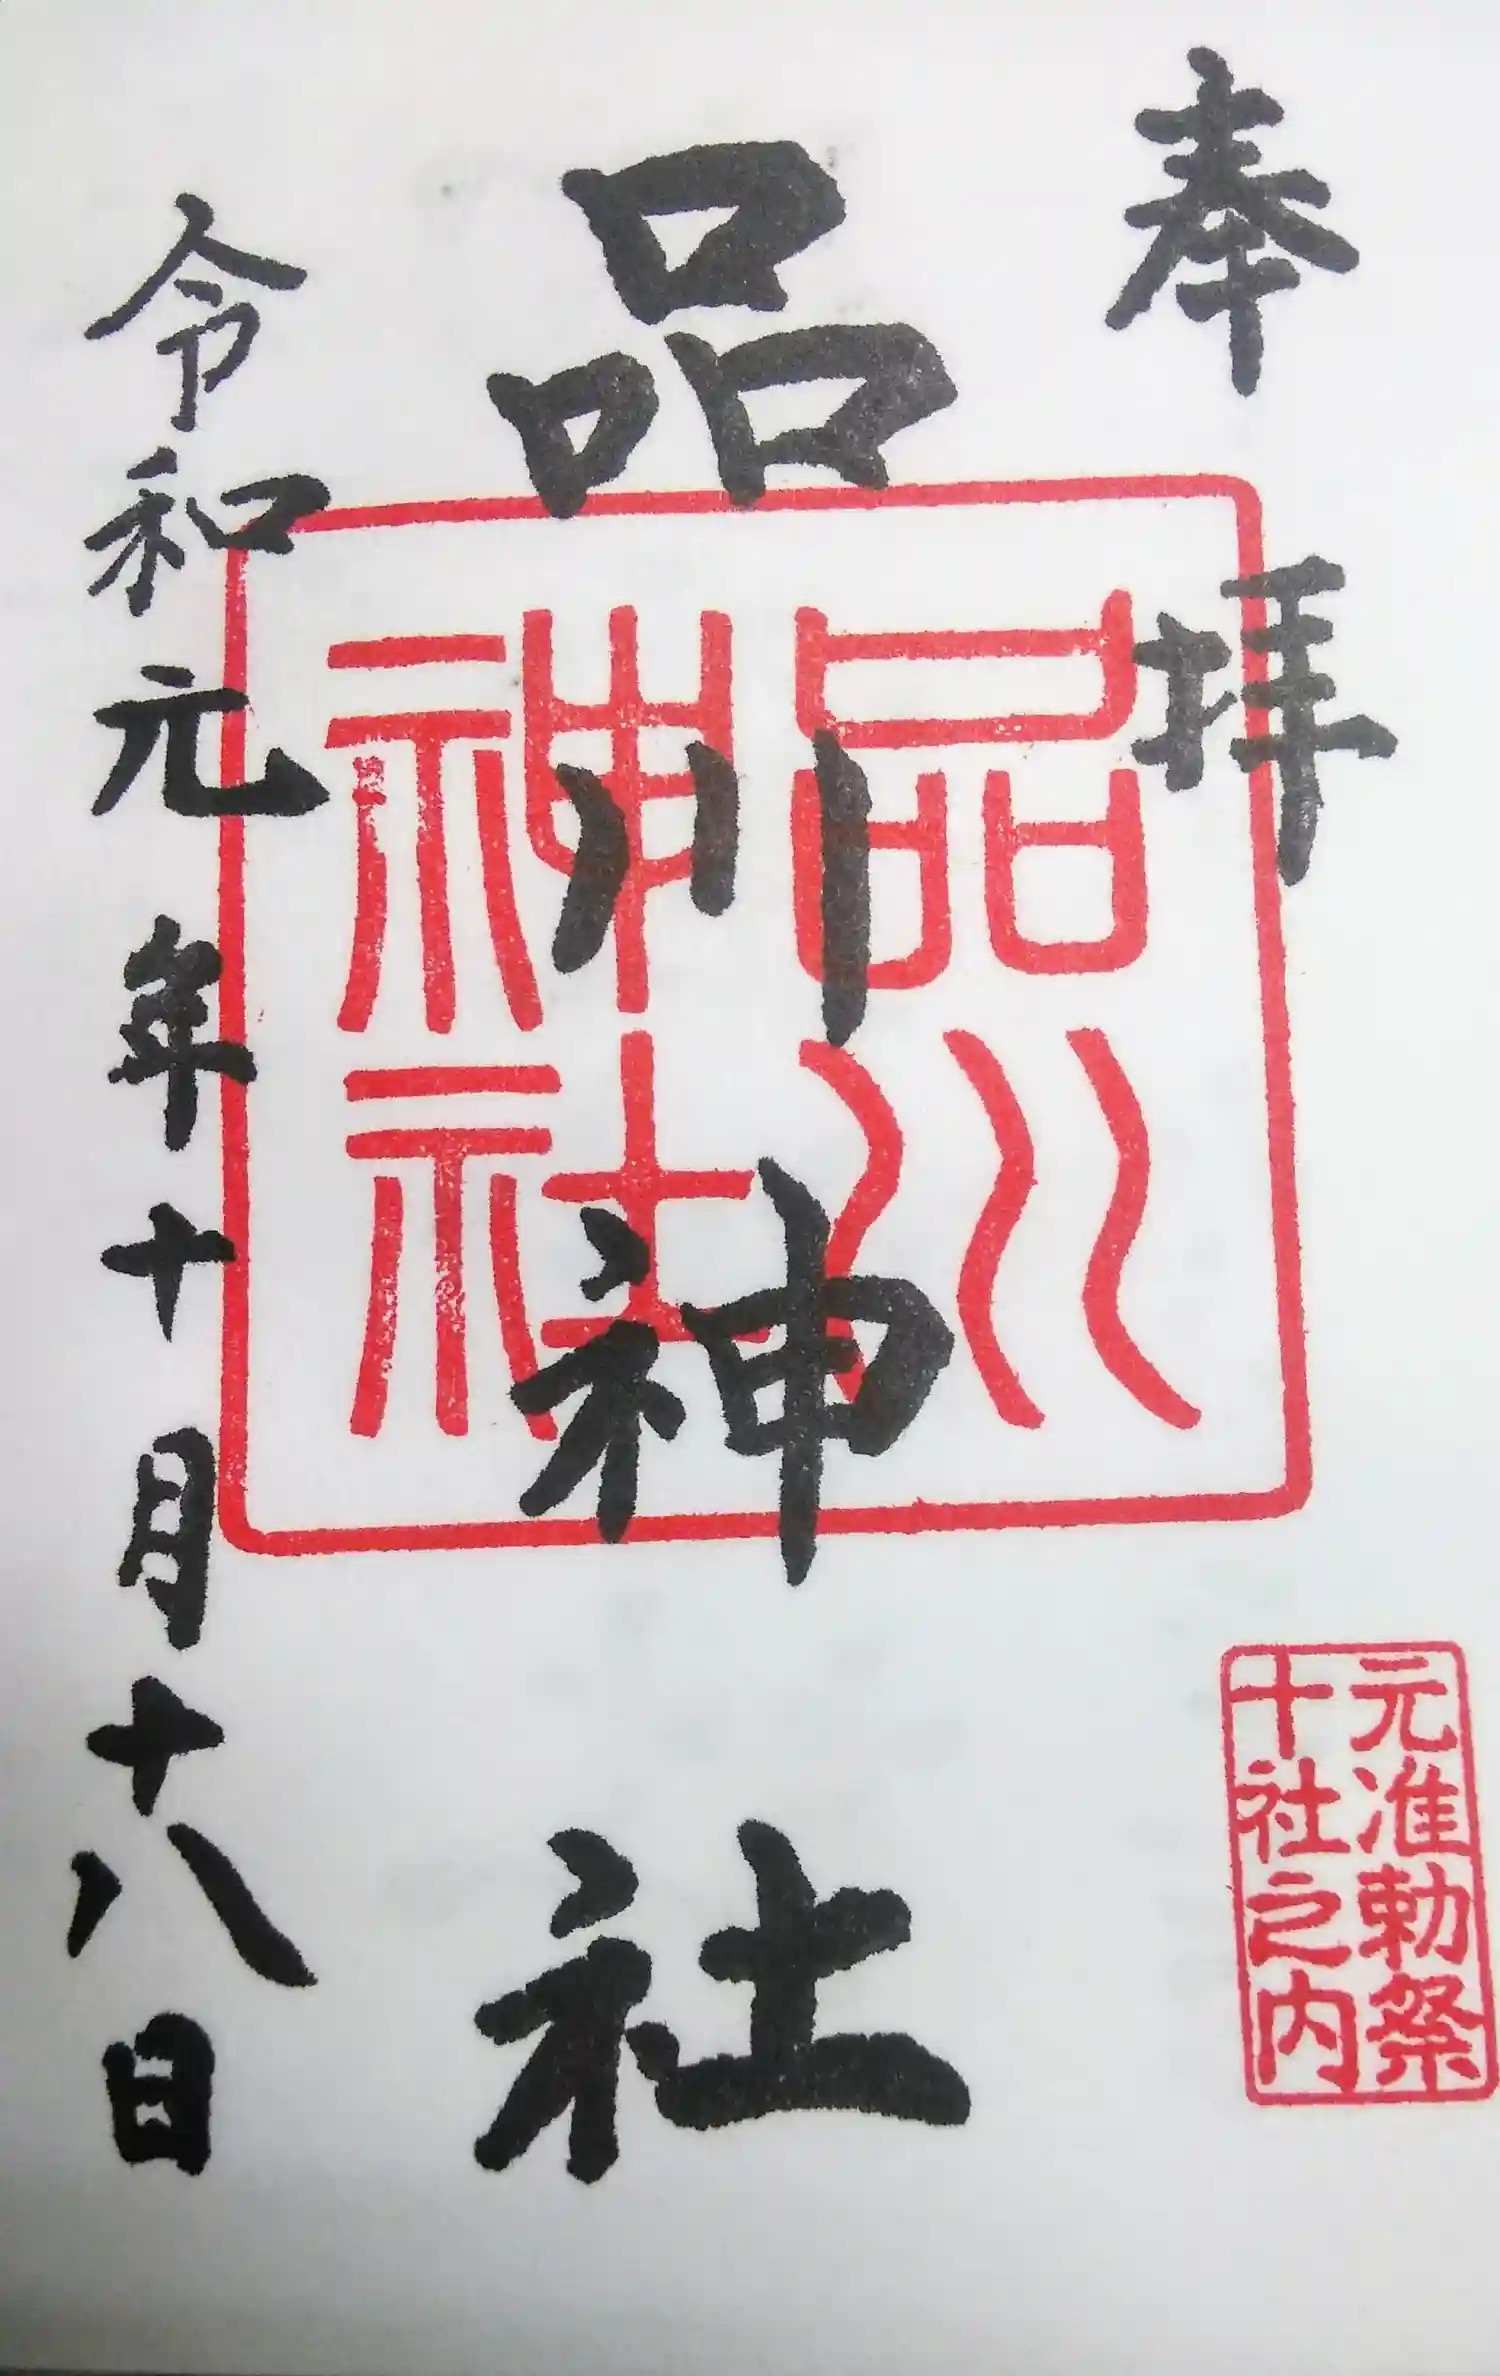 奉拝
元准勅祭
十社之内
品川神社
品川
神社
令和元年十月十八日